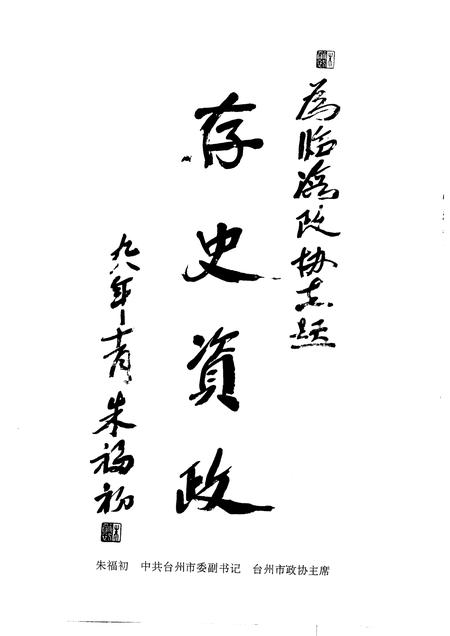 为临海政协志题
存史資政
九八年十月
朱福初
朱福初 中共台州市委副书记 台州市政协主席